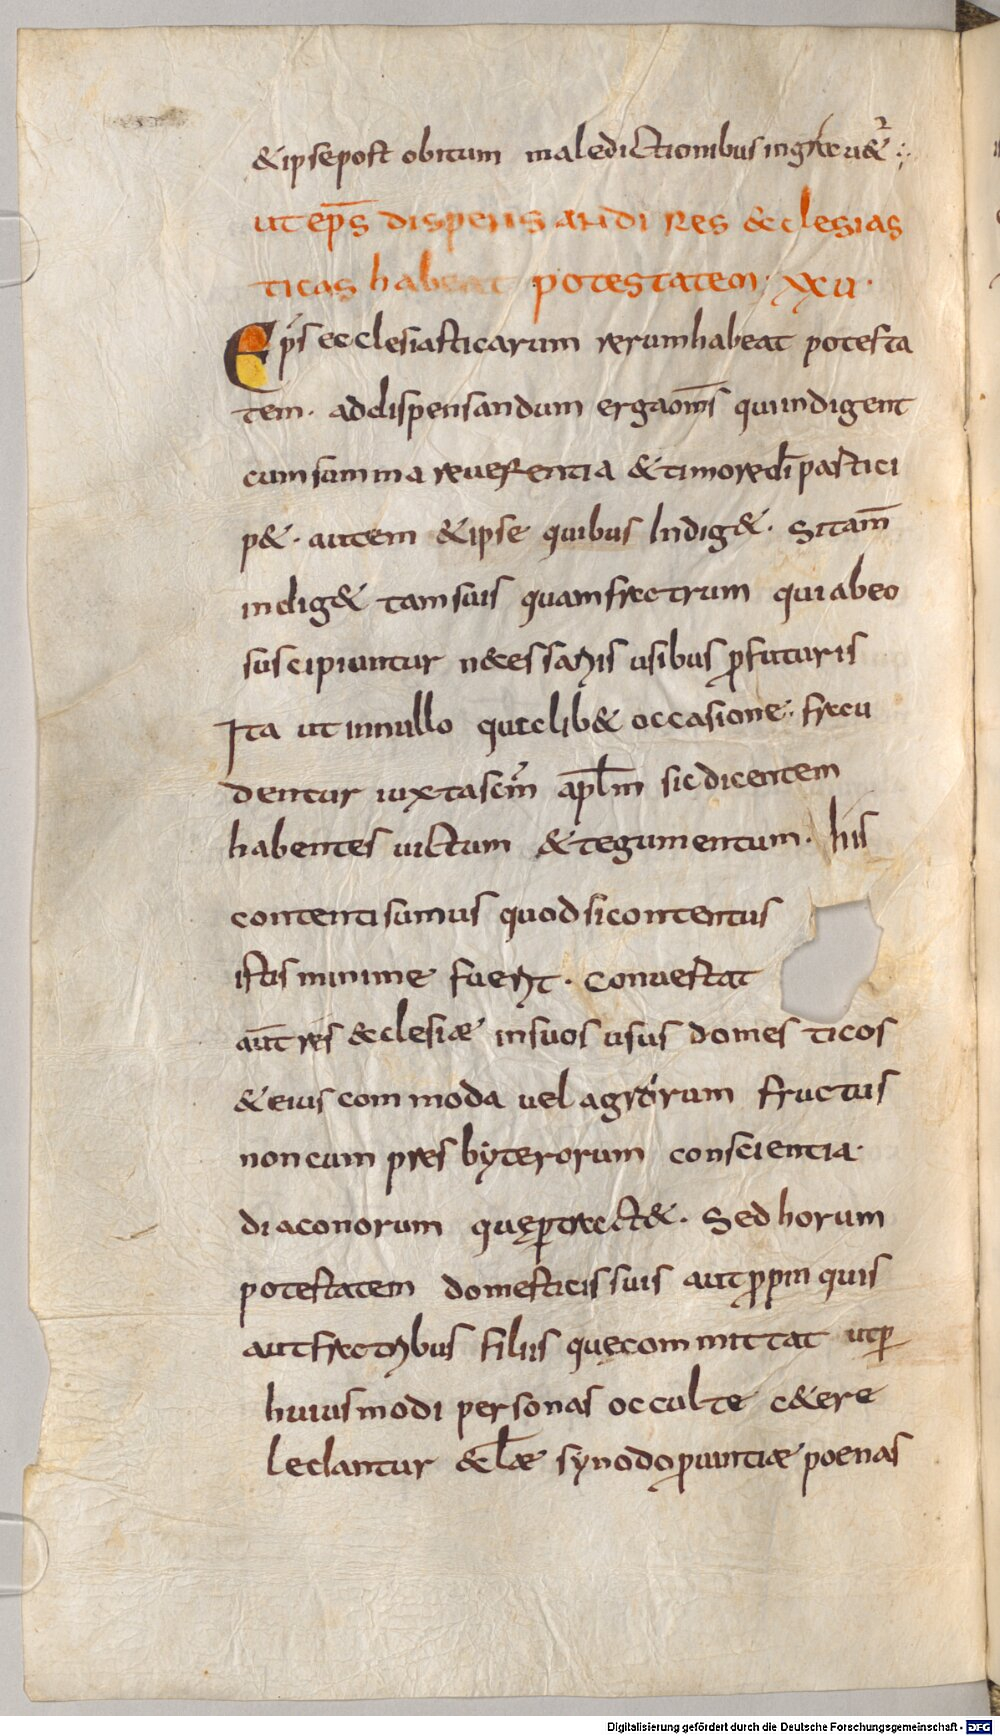 &ipsepost obitum maledictionibus ingrauet̃ ·:
ut ep̄s dispensandi res &clesias
ticas habeat potestatem· xxv·
Ep̄s ecclesiasticarum rerumhabeat potesta
tem· addispensandum ergaom̄s quiindigent
cumsumma reuerentia &timoredi̅ partici
p&· autem &ipse quibus Indig&· sitam̄
indig& tamsuis quamfratrum quiabeo
suscipiuntur n&essariis usibus ꝓfuturis
Ita utinnullo qualib& occasione· frau
dentur iuxtascm̄ apl̄m sicdicentem
habentes uictum &tegumentum· his
contentisumus quodsicontentus
istis minime fuerit· conuertat
aut̄ res &clesiæ insuos usus domesticos
&eius commoda uel agrorum fructus
noncum presbyterorum conscientia·
diaconorum quęꝑtract&· sedhorum
potestatem domesticissuis autꝓpinquis
autfratribus filiis quęcommittat utꝑ
huiusmodi personas occulte c&ere
ledantur &cl̄æ synodoꝓuintiæ poenas
Digitalisierung gefördert durch die Deutsche Forschungsgemeinschaft - DFG